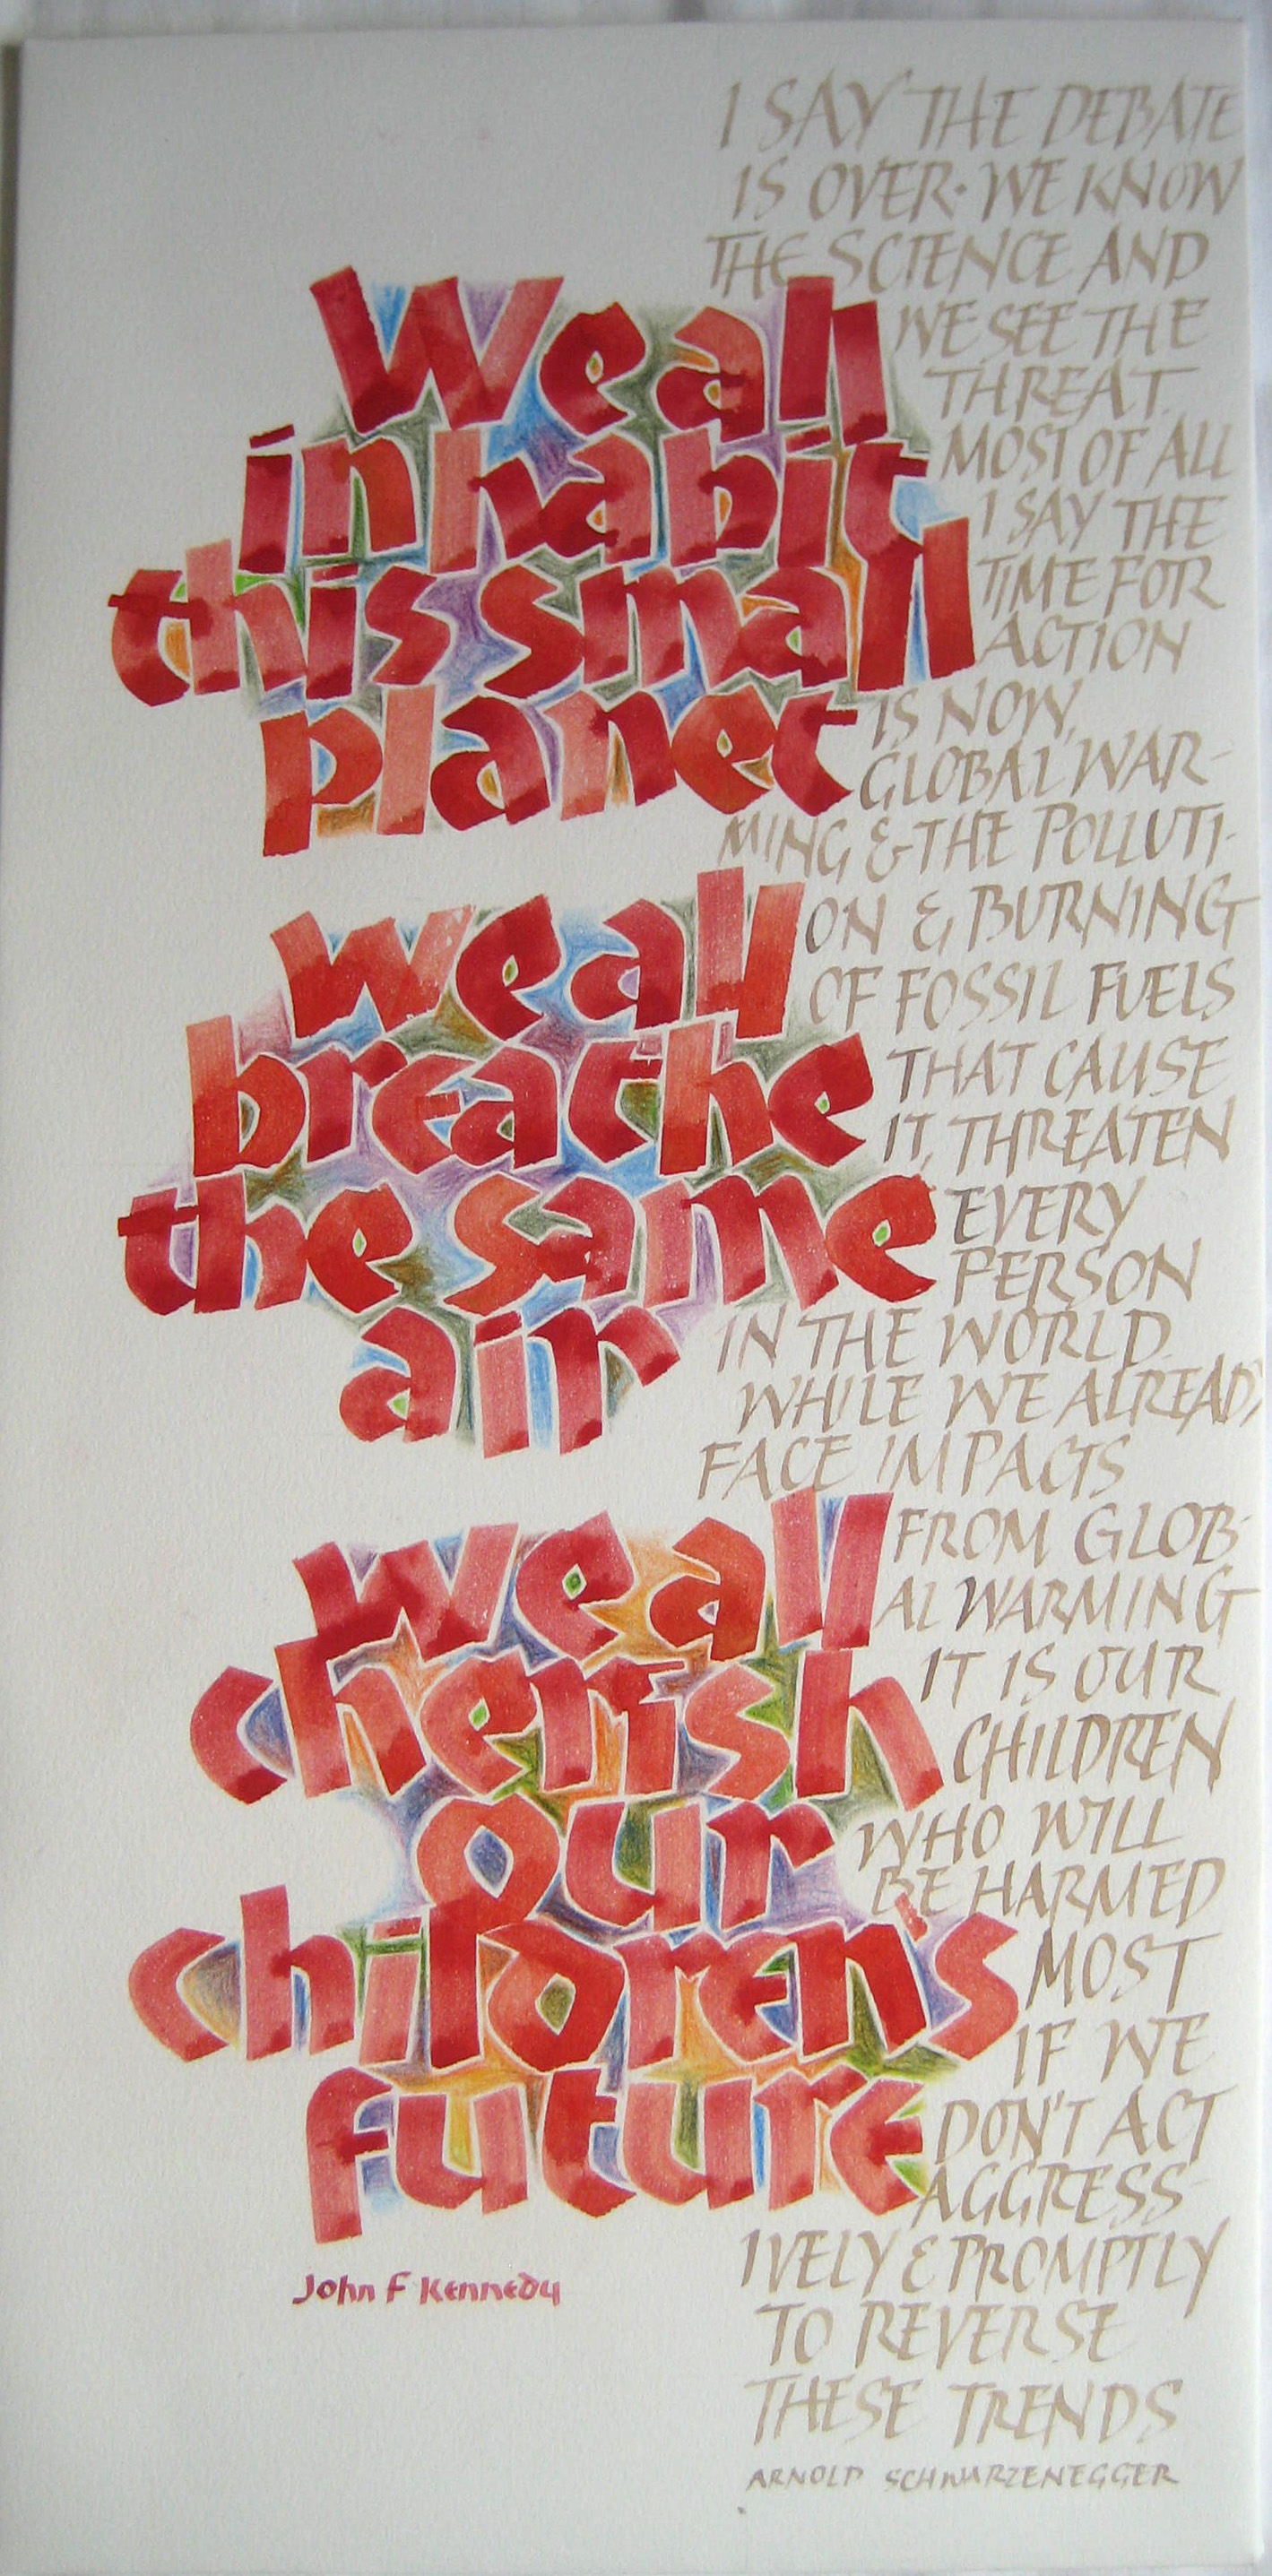 We all
inhabit
this small
planet
we all
breathe
the same
air
we all
cherish
our
children's
future
John F Kennedy
I SAY THE DEBATE
IS OVER· WE KNOW
THE SCIENCE AND
WE SEE THE
THREAT.
MOST OF ALL
I SAY THE
TIME FOR
ACTION
IS NOW,
GLOBAL WAR-
MING & THE POLLUTI-
ON & BURNING
OF FOSSIL FUELS
THAT CAUSE
IT, THREATEN
EVERY
PERSON
IN THE WORLD.
WHILE WE ALREADY
FACE IMPACTS
FROM GLOB-
AL WARMING
IT IS OUR
CHILDREN
WHO WILL
BE HARMED
MOST
IF WE
DON'T ACT
AGGRESS-
IVELY & PROMPTLY
TO REVERSE
THESE TRENDS
ARNOLD SCHWARZENEGGER